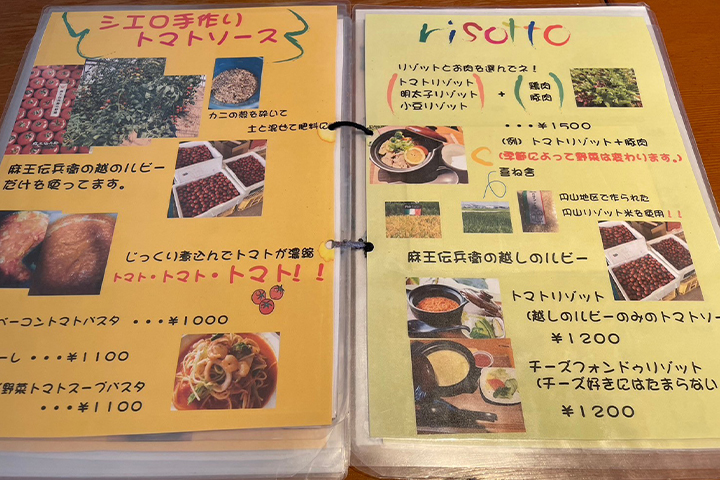 シエロ手作り
トマトソース
カニの殻を砕いて
土と混せて肥料に
麻王伝兵衛の越のルビー
だけを使ってます。
じっくり煮込んでトマトが濃縮
トマト・トマト・トマト！！
ベーコントマトパスタ ・・・￥1000
・・・￥1100
野菜トマトスープパスタ
・・・￥1100
risotto
リゾットとお肉を選んでネ！
トマトリゾット
明太子リゾット
小豆リゾット
+
鶏肉
豚肉
・・・￥1500
（例）トマトリゾット＋豚肉
（季節によって野菜は変わります。）
喜ね舎
円山地区で作られた
円山リゾット米を使用！！
麻王伝兵衛の越しのルビー
トマトリゾット
（越しのルビーのみのトマトソー
￥1200
チーズフォンドゥリゾット
（チーズ好きにはたまらない
￥1200